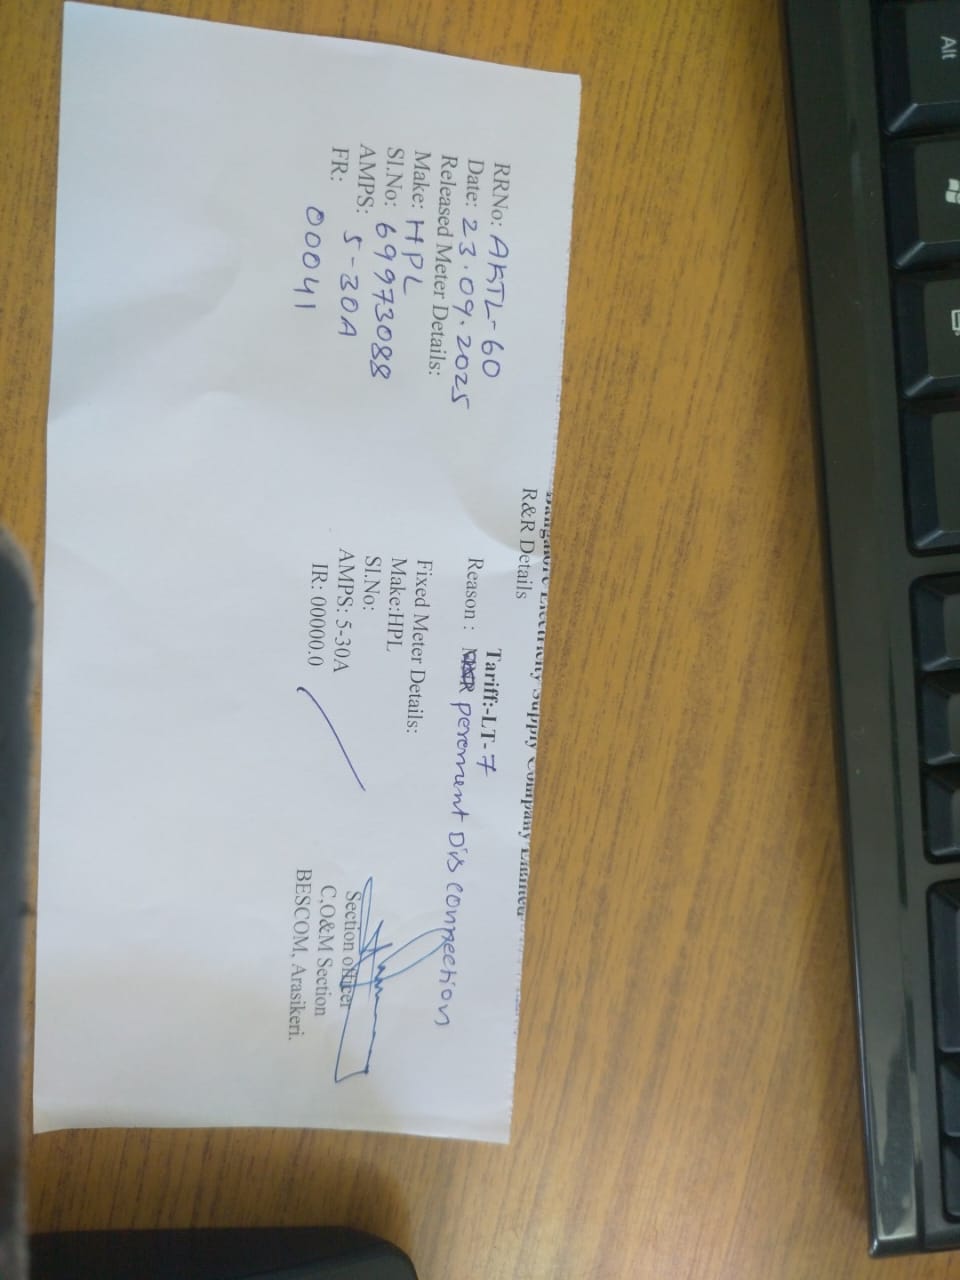 Bangalore Electricity Supply Company Limited
R&R Details
RRNo: AKTL-60
Tariff:-LT-7
Date: 23.09.2025
Reason : peroment Dis connection
Released Meter Details:
Fixed Meter Details:
Make: HPL
Make:HPL
Sl.No: 69973088
Sl.No:
AMPS: 5-30A
AMPS: 5-30A
FR: 00041
IR: 00000.0
Section officer
C,O&M Section
BESCOM, Arasikeri.
Alt